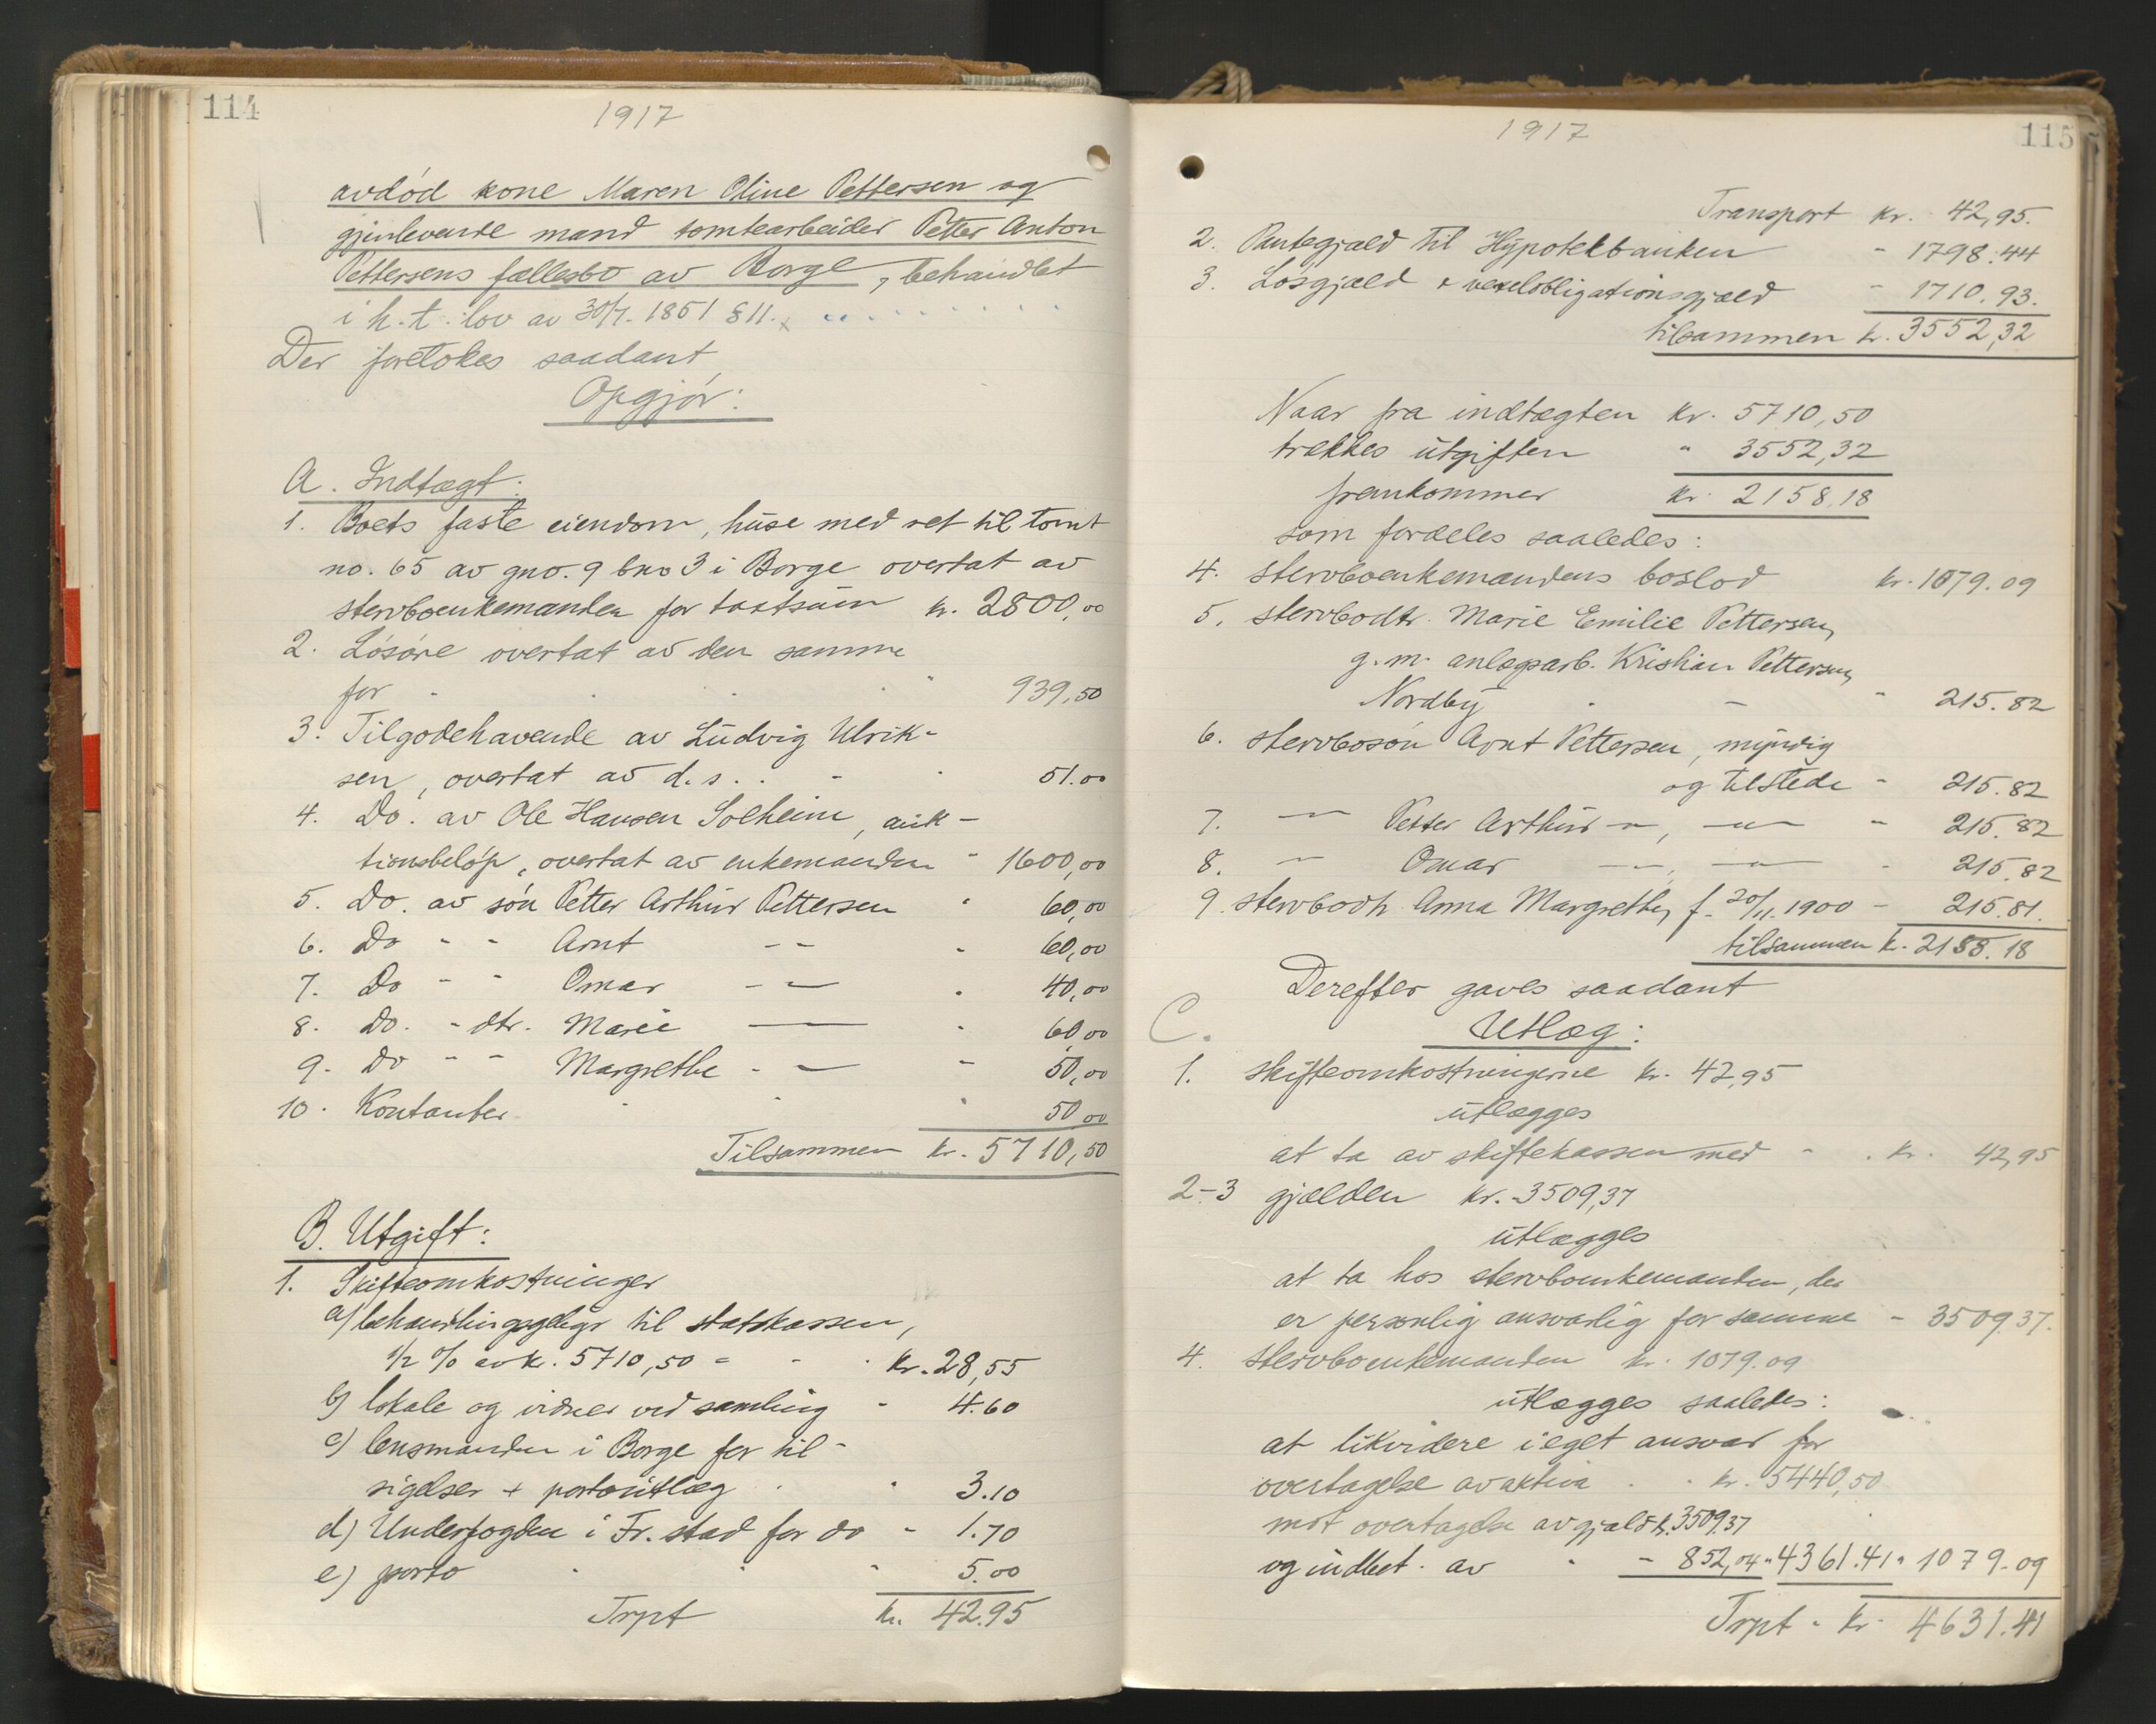 114
1917
avdød kone Maren Oline Pettersen og
gjenlevende mand tomtearbeider Petter Anton
Pettersens fællesbo av Borge, behandlet
i h. t. lov av 30/7. 1851 § 11.
Der foretokes saadant
Opgjør:
A. Indtægt:
1. Boets faste eiendom, huse med ret til tomt
no. 65 av gno. 9 bno 3 i Borge overtat av
stervboenkemanden for taxtsum kr. 2800,00
2. Løsøre overtat av den samme
for " 939,50
3. Tilgodehavende av Ludvig Ulrik-
sen, overtat av d. s. . - . 51.00
4. Do. av Ole Hansen Solheim, auk-
tionsbeløp, overtat av enkemanden " 1600,00
5. Do. av søn Petter Arthur Pettersen " 60,00
6. Do - - Arnt - - " 60,00
7. Do - - Omar - - " 40,00
8. Do. - dtr. Marie — " 60,00
9. Do - - Margrethe - — " 50,00
10. Kontanter " 50,00
Tilsammen kr. 5710,50
B. Utgift:
1. Skifteomkostninger
a) behandlingsgebyr til statskassen,
1/2 % av kr. 5710,50 = - . kr. 28,55
b) lokale og vidner ved samling - 4.60
c) lensmanden i Borge for til-
sigelser + portoutlæg . " 3.10
d) Underfogden i Fr.stad for do - 1.70
e) porto . . " 5.00
Trpt kr. 42.95
1917
115
Transport kr. 42,95.
2. Pantegjæld til Hypotekbanken - 1798.44
3. Løsgjæld & vexelobligationsgjæld - 1710.93.
tilsammen kr. 3552,32
Naar fra indtægten kr. 5710,50
trækkes utgiften " 3552,32
fremkommer kr. 2158.18
som fordeles saaledes:
4. stervboenkemandens boslod kr. 1079.09
5. stervbodtr. Marie Emilie Pettersen,
g. m. anlægsarb. Kristian Pettersen,
Nordby . - " 215.82
6. stervbosøn Arnt Pettersen, myndig
og tilstede - 215.82
7. -"- Petter Arthur -"-, -"- " 215.82
8. -"- Omar -"-, -"- - 215.82
9. stervbodtr Anna Margrethe, f. 20/11. 1900 - 215.81.
tilsammen kr. 2158.18
Derefter gaves saadant
C. Utlæg:
1. skifteomkostningerne kr. 42,95
utlægges
at ta av skiftekassen med - . kr. 42,95
2-3 gjælden kr. 3509,37
utlægges
at ta hos stervboenkemanden, der
er personlig ansvarlig for samme - 3509.37.
4. stervboenkemanden kr. 1079.09
utlægges saaledes:
at likvidere i eget ansvar for
overtagelse av aktiva . . kr. 5440,50
mot overtagelse av gjæld kr. 3509.37
og indbet. av " - 852,04 " 4361.41 " 1079.09
Trpt - kr. 4631.41